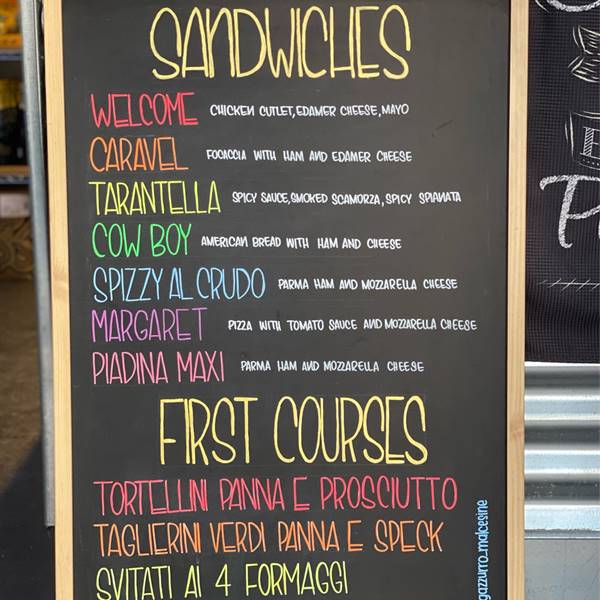 SANDWICHES
WELCOME CHICKEN CUTLET, EDAMER CHEESE, MAYO
CARAVEL FOCACCIA WITH HAM AND EDAMER CHEESE
TARANTELLA SPICY SAUCE, SMOKED SCAMORZA, SPICY SPIANATA
COW BOY AMERICAN BREAD WITH HAM AND CHEESE
SPIZZY AL CRUDO PARMA HAM AND MOZZARELLA CHEESE
MARGARET PIZZA WITH TOMATO SAUCE AND MOZZARELLA CHEESE
PIADINA MAXI PARMA HAM AND MOZZARELLA CHEESE
FIRST COURSES
TORTELLINI PANNA E PROSCIUTTO
TAGLIERINI VERDI PANNA E SPECK
SVITATI AI 4 FORMAGGI
gazzurro_malcesine